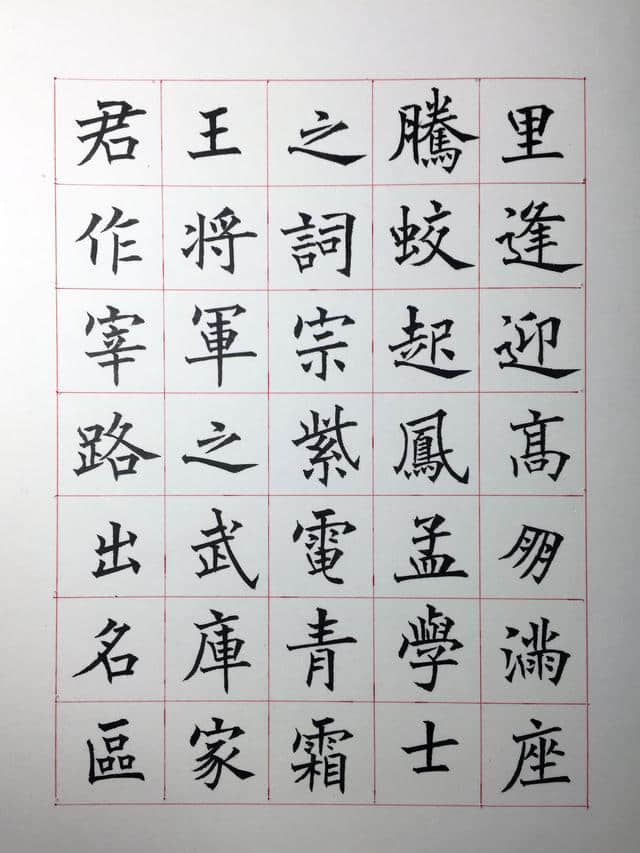 里逢迎高朋滿座
騰蛟起鳳孟學士
之詞宗紫電青霜
王將軍之武庫家
君作宰路出名區